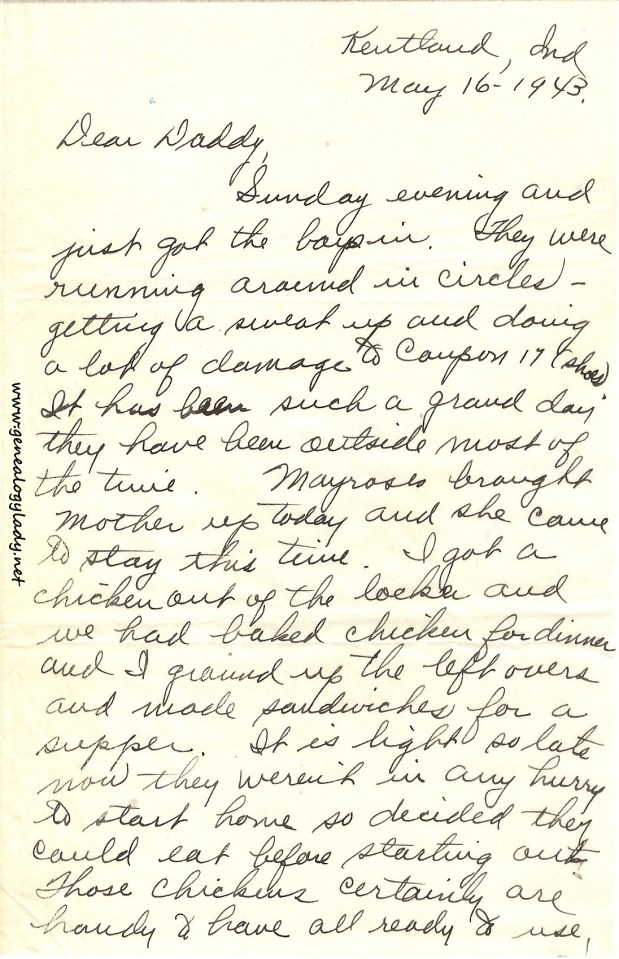 Kentland, Ind
May 16-1943.
Dear Daddy,
Sunday evening and
just got the boys in. They were
running around in circles -
getting a sweat up and doing
a lot of damage to Coupon 17 (shoes)
It has been such a grand day
they have been outside most of
the time. Mayroses brought
Mother up today and she came
to stay this time. I got a
chicken out of the locker and
we had baked chicken for dinner
and I ground up the left overs
and made sandwiches for a
supper. It is light so late
now they weren't in any hurry
to start home so decided they
could eat before starting out.
Those chickens certainly are
handy to have all ready to use,
www.genealogylady.net